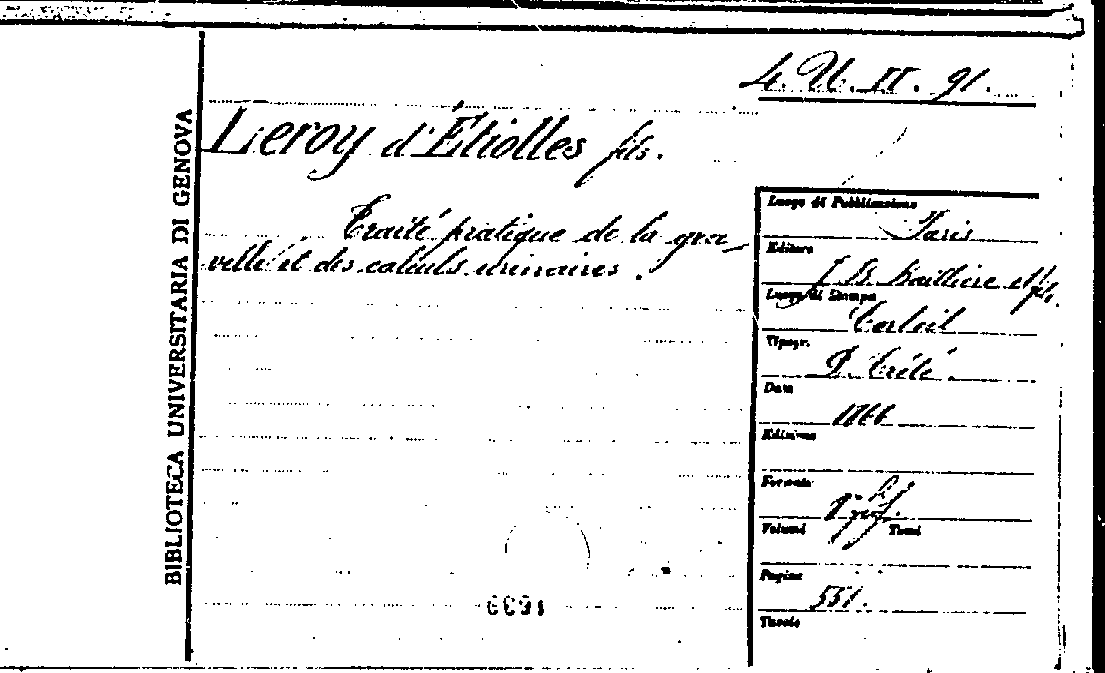 4. U. II. 91.
BIBLIOTECA UNIVERSITARIA DI GENOVA
Leroy d'Étiolles fils.
Traité pratique de la gra-
velle et des calculs urinaires.
Luogo di Pubblicazione
Paris
Editore
J. B. Baillière et fils.
Luogo di Stampa
Corbeil
Tipogr.
P. Crété.
Data
1866
Edizione
Formato
8°
Volumi Tomi
Pagine
551.
Tavole